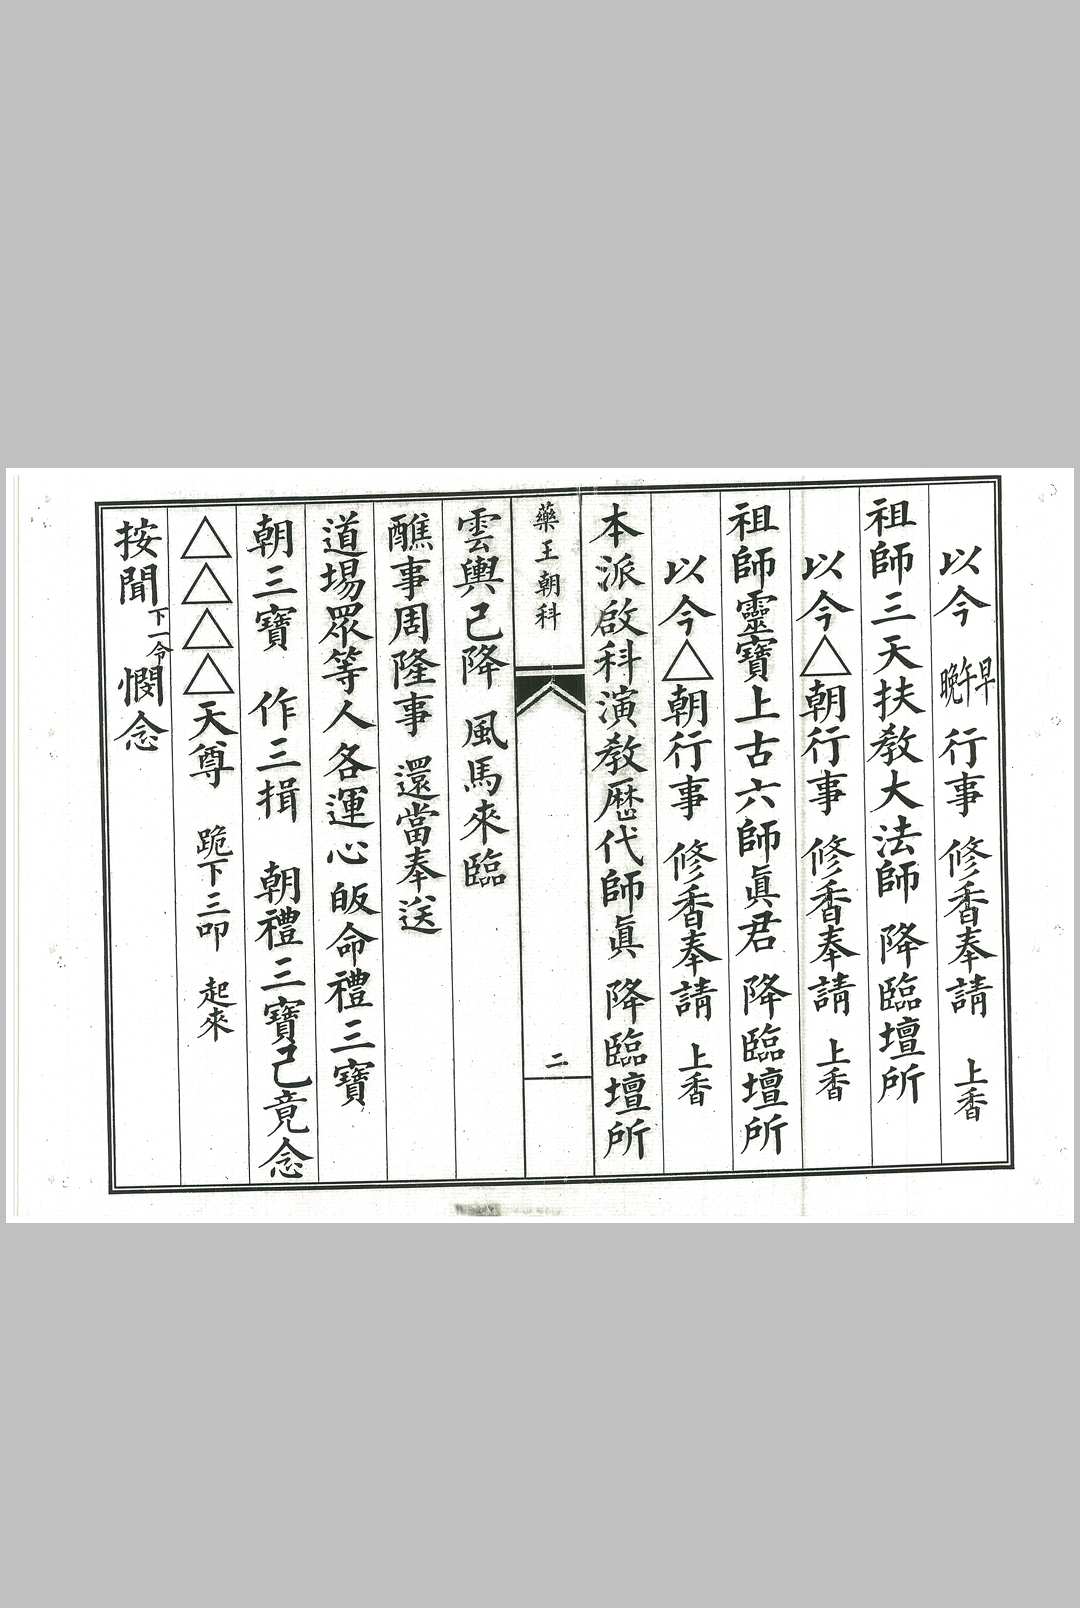 以今 早午晚 行事 修香奉請 上香
祖師三天扶教大法師 降臨壇所
以今△朝行事 修香奉請 上香
祖師靈寶上古六師眞君 降臨壇所
以今△朝行事 修香奉請 上香
本派啟科演教歷代師眞 降臨壇所
藥王朝科 二
雲輿已降 風馬來臨
醮事周隆事 還當奉送
道場眾等人各運心皈命禮三寶
朝三寶 作三揖 朝禮三寶已竟念
△△△△天尊 跪下三叩 起來
按聞下一令 憫念